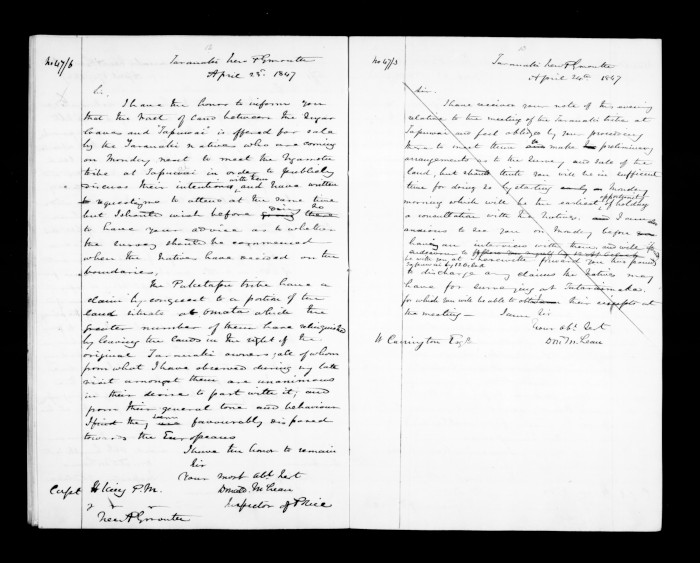 No 47/6
Taranaki New Plymouth
April 23d 1847
Sir,
I have the honor to inform you
that the tract of land between the Sugar
Loaves and Tapuwai is offered for sale
by the Taranaki natives who are coming
on Monday next to meet the Ngamotu
tribe at Tapuwai in order to publicly
discuss their intentions with them and have written
requesting me to attend at the same time
but I should wish before doing so
to have your advice as to whether
the survey should be commenced
when the Natives have decided on the
boundaries.
The Puketapu tribe have a
claim by conquest to a portion of the
land situate at Omata which the
greater number of them have relinquished
by leaving the lands in the right of the
original Taranaki owners; all of whom
from what I have observed during my late
visit amongst them are unanimous
in their desire to part with it; and
from their general tone and behaviour
I find they seem favourably disposed
towards the Europeans
I have the honor to remain
Sir
Your most obt Sert
Donald McLean
Inspector of Police
Captn H King P.M.
New Plymouth
No 47/3
Taranaki New Plymouth
April 24th 1847
Sir
I have received your note of this evening
relative to the meeting of the Taranaki tribe at
Tapuwai and feel obliged by your
there to meet them make preliminary
arrangements as to the survey and sale of the
land, but think you will be in sufficient
time for doing so by starting Monday
morning which will be the earliest opportunity of holding
a consultation with the Natives. I am
anxious to see you on Monday before
having an interview with them and will
endeavour to
be with you at
forward you two pounds
to discharge any claims the Natives may
have for surveying at Tataraimaka.
for which you will be able to obtain their receipts at
the meeting — I am Sir
Your obt Sert
Don McLean
W Carrington Esqre